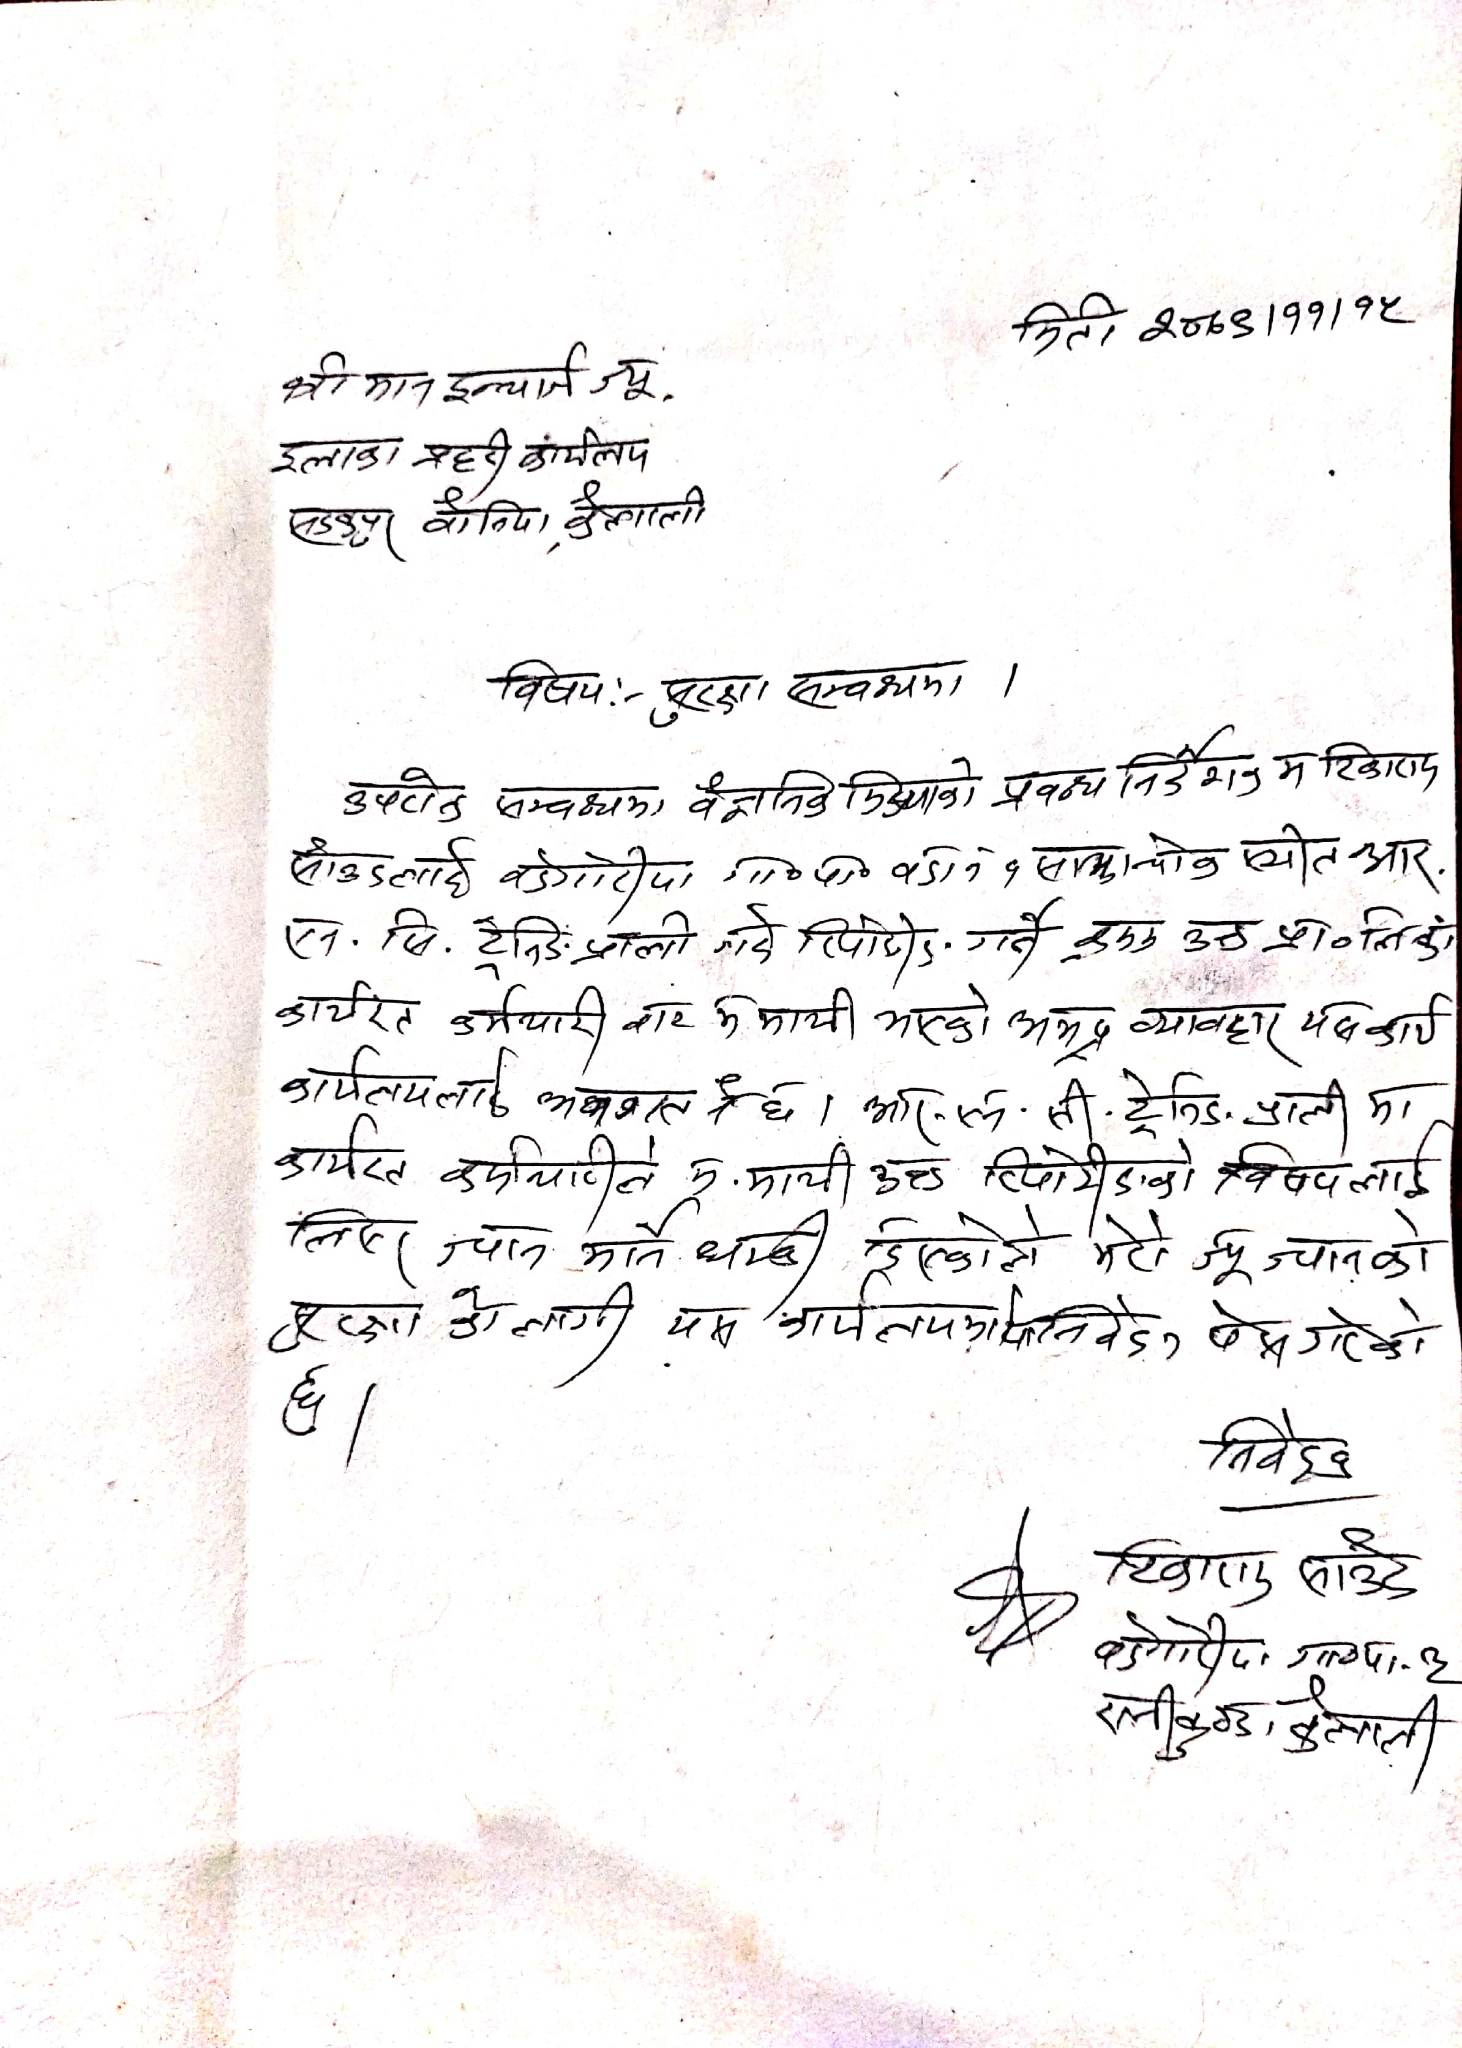 मिती २०७९।११।१५
श्री मान इन्चार्ज ज्यू.
इलाका प्रहरी कार्यलय
सडकपुर बौनिया, कैलाली
विषय:- सुरक्षा सम्बन्धमा ।
उपरोक्त सम्बन्धमा वैज्ञानिक मिडियाको प्रबन्ध निर्देशक म टिकाराम
साँउडलाई बर्दगोरीया गा०पा० वडा नं १ साझाचोक स्थीत आर.
एन. सि. ट्रेनिङ प्राली गई रिपोर्टीङ. गर्ने क्रममा उक्त प्रा०लिका
कार्यरत कर्मचारी बाट म माथी भएको अभद्र व्यावहार यस कार्य
कार्यलयलाई अवगत नै छ । आर. एन. सी. ट्रेनिङ. प्राली मा
कार्यरत कर्मचारीले म. माथी उक्त रिपोर्टीङको विषयलाई
लिएर ज्यान मार्ने धम्की दिएकोले मेरो ज्यू ज्यानको
सुरक्षा को लागी यस कार्यलयमा निवेदन पेश गरेको
छु ।
निवेदक
टिकाराम साउँड
बर्दगोरीया गा०पा.
रानीकुण्डा, कैलाली